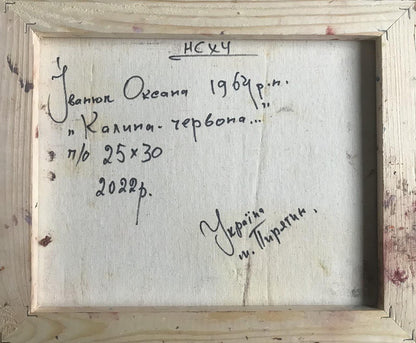 НСХУ
Іванюк Оксана 1964 р.н.
„Калина-червона..."
п/о 25х30
2022р.
Україна
м. Пирятин.